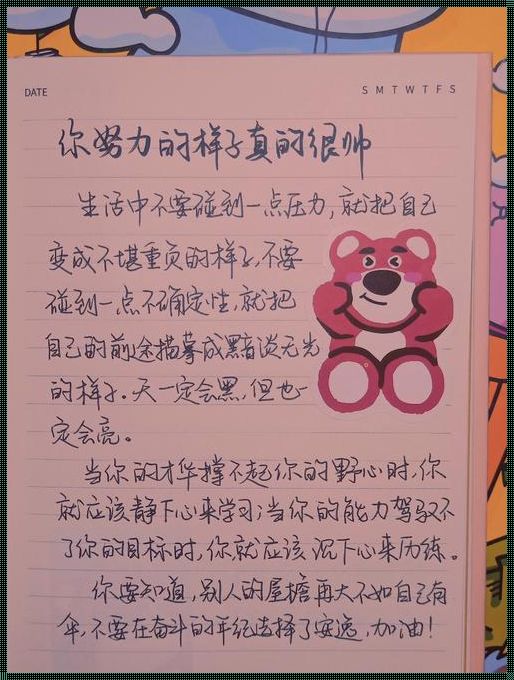 DATE
S M T W T F S
你努力的样子真的很帅
生活中不要碰到一点压力,就把自己
变成不堪重负的样子,不要
碰到一点不确定性,就把
自己的前途描摹成黯淡无光
的样子。天一定会黑,但也一
定会亮。
当你的才华撑不起你的野心时,你
就应该静下心来学习;当你的能力驾驭不
了你的目标时,你就应该沉下心来历练。
你要知道,别人的屋檐再大不如自己有
伞,不要在奋斗的年纪选择了安逸,加油!